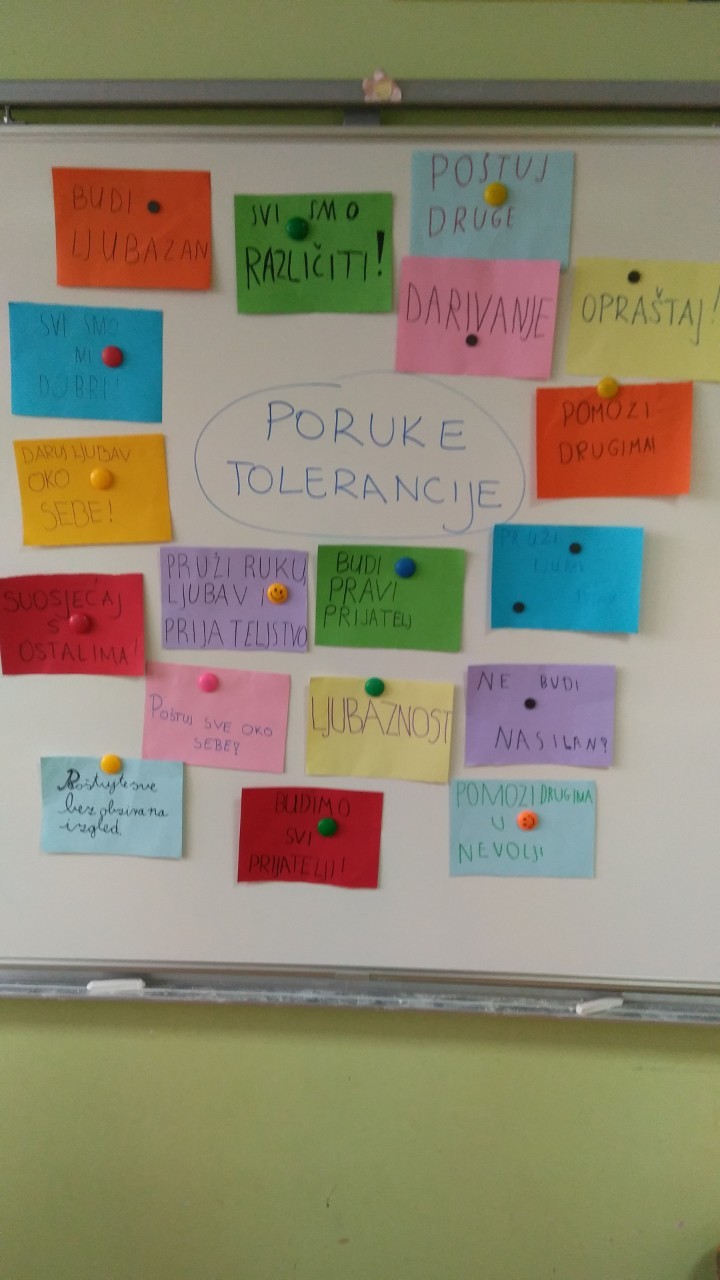 BUDI
LJUBAZAN
SVI SMO
RAZLIČITI!
POŠTUJ
DRUGE
DARIVANJE
OPRAŠTAJ!
SVI SMO
MI
DOBRI!
PORUKE
TOLERANCIJE
POMOZI
DRUGIMA!
DARUJ LJUBAV
OKO
SEBE!
SUOSJEĆAJ
S
OSTALIMA!
PRUŽI RUKU,
LJUBAV I
PRIJATELJSTVO
BUDI
PRAVI
PRIJATELJ
PRUŽI
POŠTUJ SVE OKO
SEBE!
LJUBAZNOST
NE BUDI
NASILAN!
Poštujte sve
bez obzira na
izgled
BUDIMO
SVI
PRIJATELJI!
POMOZI DRUGIMA
U
NEVOLJI